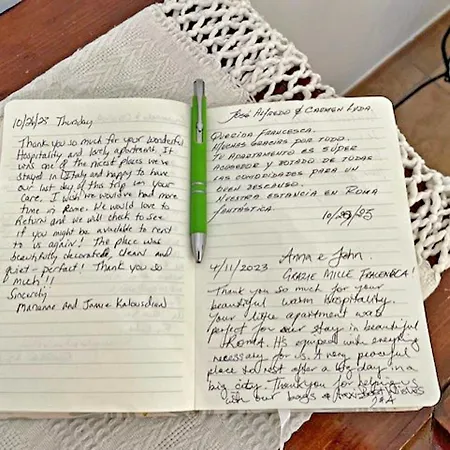 10/26/23 Thursday
Thank you so much for your wonderful
Hospitality and lovely apartment. It
was one of the nicest places we've
stayed in Italy and happy to have
our last day of this trip in your
care. I wish we would've had more
time in Rome. We would love to
Return and we will check to see
if you might be available to rent
to us again! The place was
beautifully decorated, clean and
quiet - perfect! Thank you so
much!!
Sincerely
Marianne and Jamie
José Alfredo & Carmen Lyda.
Querida Francesca.
Muchas gracias por todo.
Tu apartamento es súper
acogedor y dotado de todas
las comodidades para un
buen descanso.
Nuestra estancia en Roma
fantástica.
Anna e John.
4/11/2023 GRAZIE MILLE FRANCESCA!
Thank you so much for your
beautiful warm hospitality.
Your little apartment was
perfect for our stay in beautiful
Roma. It's equiped with everything
necessary for us. A very peaceful
place to rest after a big day in a
big city. Thank you for helping us
with our bags Best Wishes
J & A